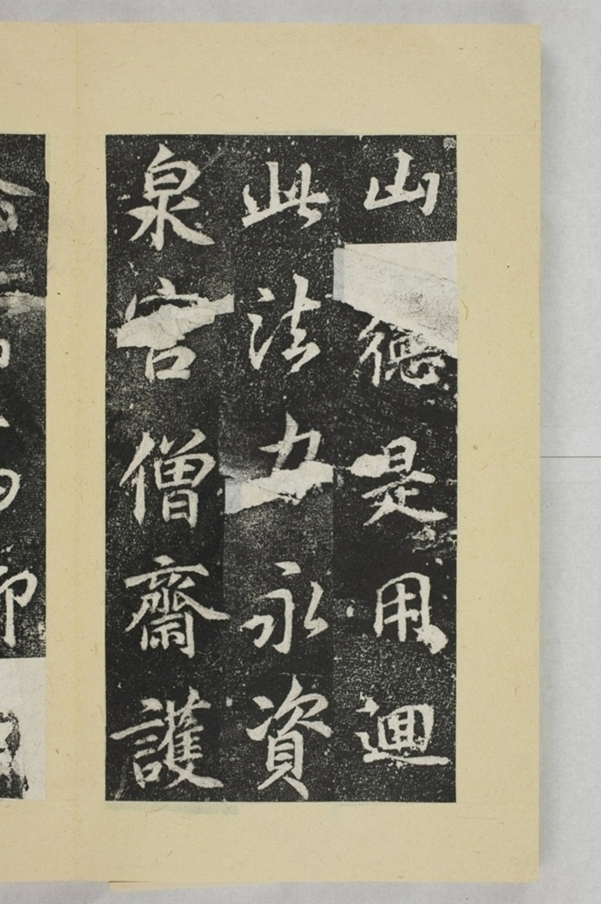 山德是用迴
此法力永資
泉宮僧齋護